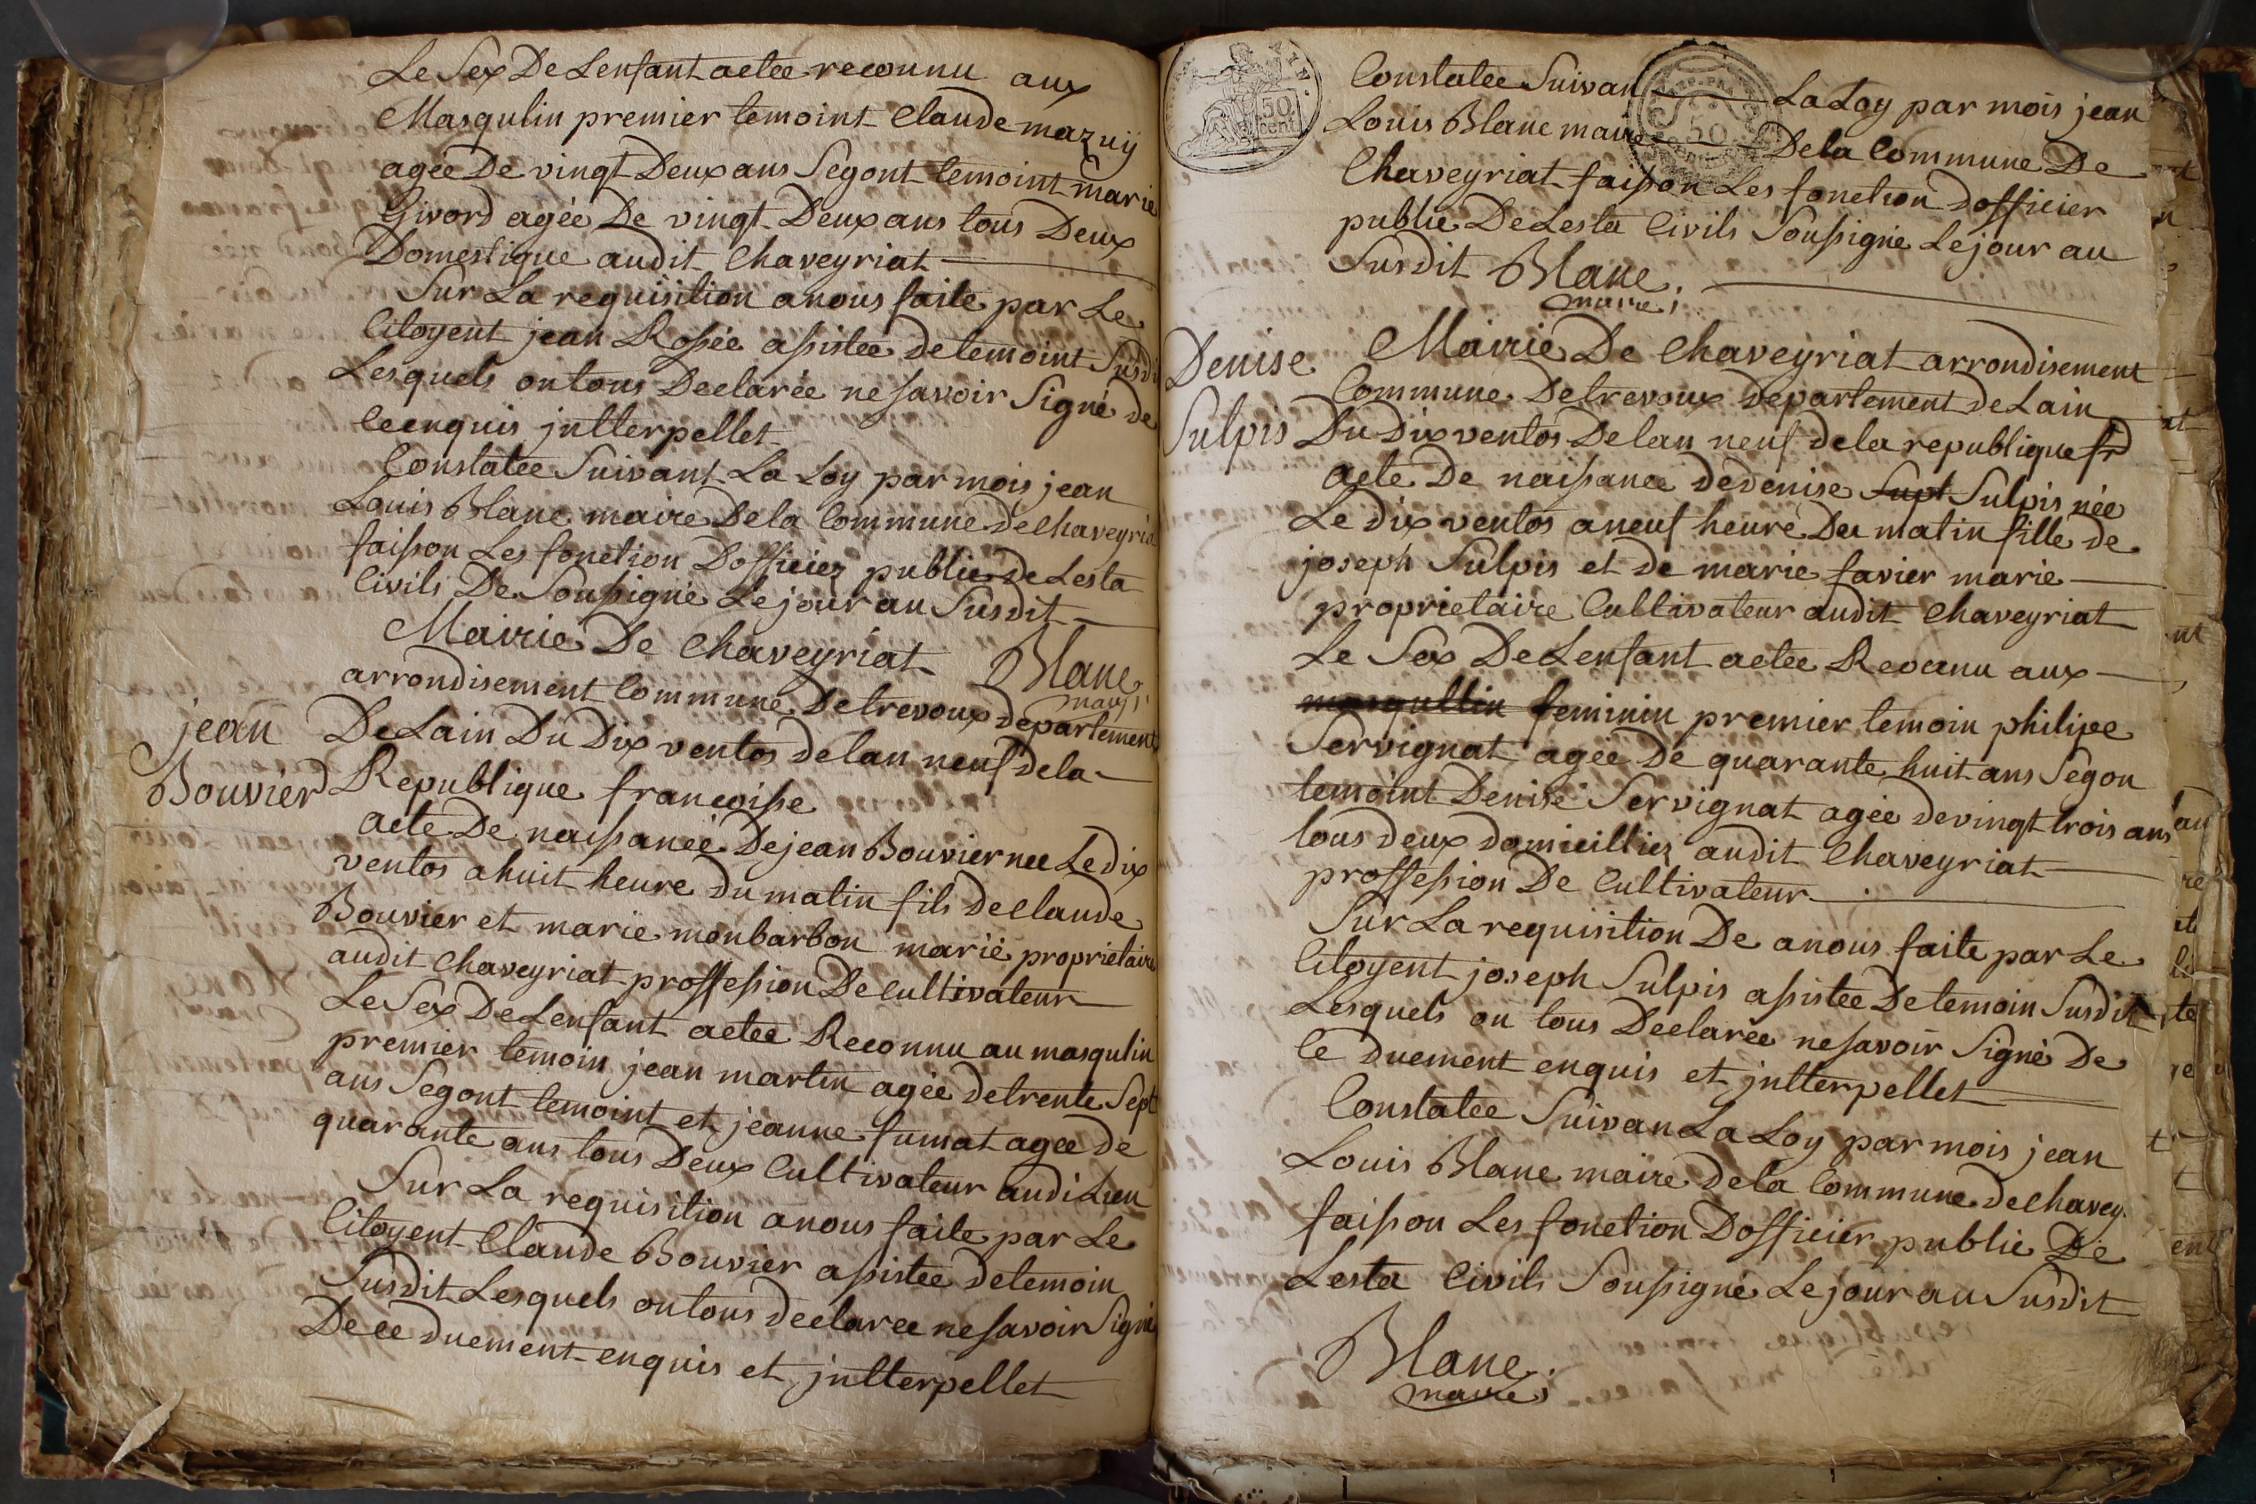 Le Sex De Lenfant aetee reconnu aux
Masqulin premier temoint Claude mazuy
agée De vingt Deux ans Segont temoint marie
Givord agée De vingt Deux ans tous Deux
Domestique audit Chaveyriat
Sur La requisition a nous faite par Le
Citoyent jean Rosée asistee de temoint Susdi
Lesquels on tous Declarée ne savoir Signé de
ce enquis jntterpellet
Constatee Suivant La Loy par mois jean
Louis Blanc maire De la Commune de Chaveyria
faison Les fonction Dofficier public de Lesta
Civils De Soussigné Le jour au Susdit
Mairie De Chaveyriat Blanc
maire
arrondisement Commune De trevoux departement
jean
De Lain Du Dix ventos de lan neuf de la
Bouvier
Republique francoisse
acte De naissanée De jean Bouvier nee Le dix
ventos a huit heure du matin fils de Claude
Bouvier et marie monbarbon marié proprietaire
audit Chaveyriat proffession De Cultivateur
Le Sex De Lenfant aetee Reconnu au masqulin
premier temoin jean martin agée de trente Sept
ans Segont temoint et jeanne fumat agee de
quarante ans tous Deux Cultivateur audi Lieu
Sur La requisition a nous faite par Le
Citoyent Claude Bouvier asistee de temoin
Susdit Lesquels on tous declaree ne savoir Signé
De ce duement enquis et jntterpellet
50
cent
Constatee Suivan La Loy par mois jean
50
Louis Blanc maire De la Commune De
Chaveyriat faison Les fonction dofficier
public De Lesta Civils Soussigné Le jour au
Susdit Blanc
maire
Denise
Sulpis
Mairie De Chaveyriat arrondisement
Commune De trevoux Departement de Lain
Du Dix ventos De lan neuf de la republique fr
acte De naissance de denise Supt Sulpis née
Le dix ventos a neuf heure Du matin fille de
joseph Sulpis et de marie favier marie
proprietaire Cultivateur audit Chaveyriat
Le Sex De Lenfant aetee Reconnu aux
masqullin feminin premier temoin philipe
Servignat agée De quarante huit ans Segon
temoint Denise Servignat agée de vingt trois ans
tous deux domicillier audit Chaveyriat
proffession De Cultivateur
Sur La requisition De a nous faite par Le
Citoyent joseph Sulpis asistee De temoin Susdit
Lesquels on tous Declarée ne savoir Signé De
Ce duement enquis et jntterpellet
Constatee Suivan La Loy par mois jean
Louis Blanc maire de la Commune de Chavey.
faison Les fonction Dofficier public De
Lesta Civils Soussigné Le jour au Susdit
Blanc
maire